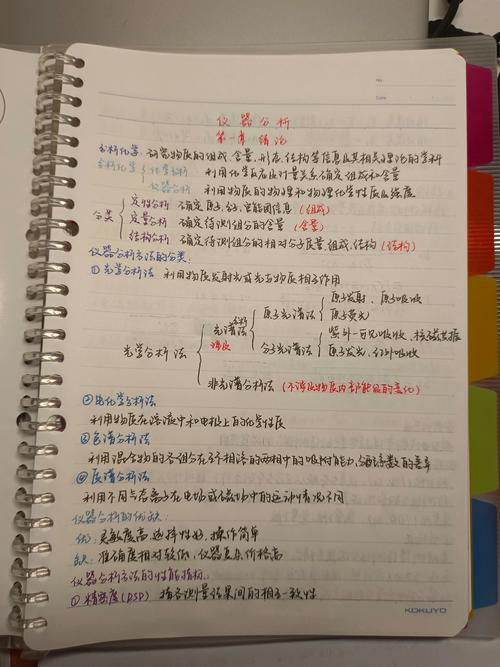 No.
Date
仪器分析
第一章 绪论
分析化学：研究物质的组成、含量、形态、结构等信息及其相关理论的学科
分析化学 { 化学分析 利用化学反应及计量关系确定组成和含量
仪器分析 利用物质的物理和物理化学性质及强度
分类 { 定性分析 确定原子、分子、官能团信息 (组成)
定量分析 确定待测组分的含量 (含量)
结构分析 确定待测组分的相对分子质量、组成、结构 (结构)
仪器分析方法的分类：
①光学分析法 利用物质发射光或光与物质相互作用
光学分析法 { 光谱分析法 { 原子光谱法 { 原子发射、原子吸收
原子荧光
涉及
分子光谱法 { 紫外-可见吸收、核磁共振
原子发光、红外吸收
非光谱分析法 (不涉及物质内部能级的变化)
②电化学分析法
利用物质在溶液中和电极上的化学性质
③色谱分析法
利用混合物的各组分在互不相溶的两相中的吸附能力、分配系数的差异
④质谱分析法
利用不同离子在电场或磁场中的运动情况不同
仪器分析的优缺：
优：灵敏度高、选择性好、操作简单
缺：准确度相对较低、仪器复杂、价格高
仪器分析方法的性能指标：
①精密度(RSD) 指各测量结果间的相互一致性
KOKUYO